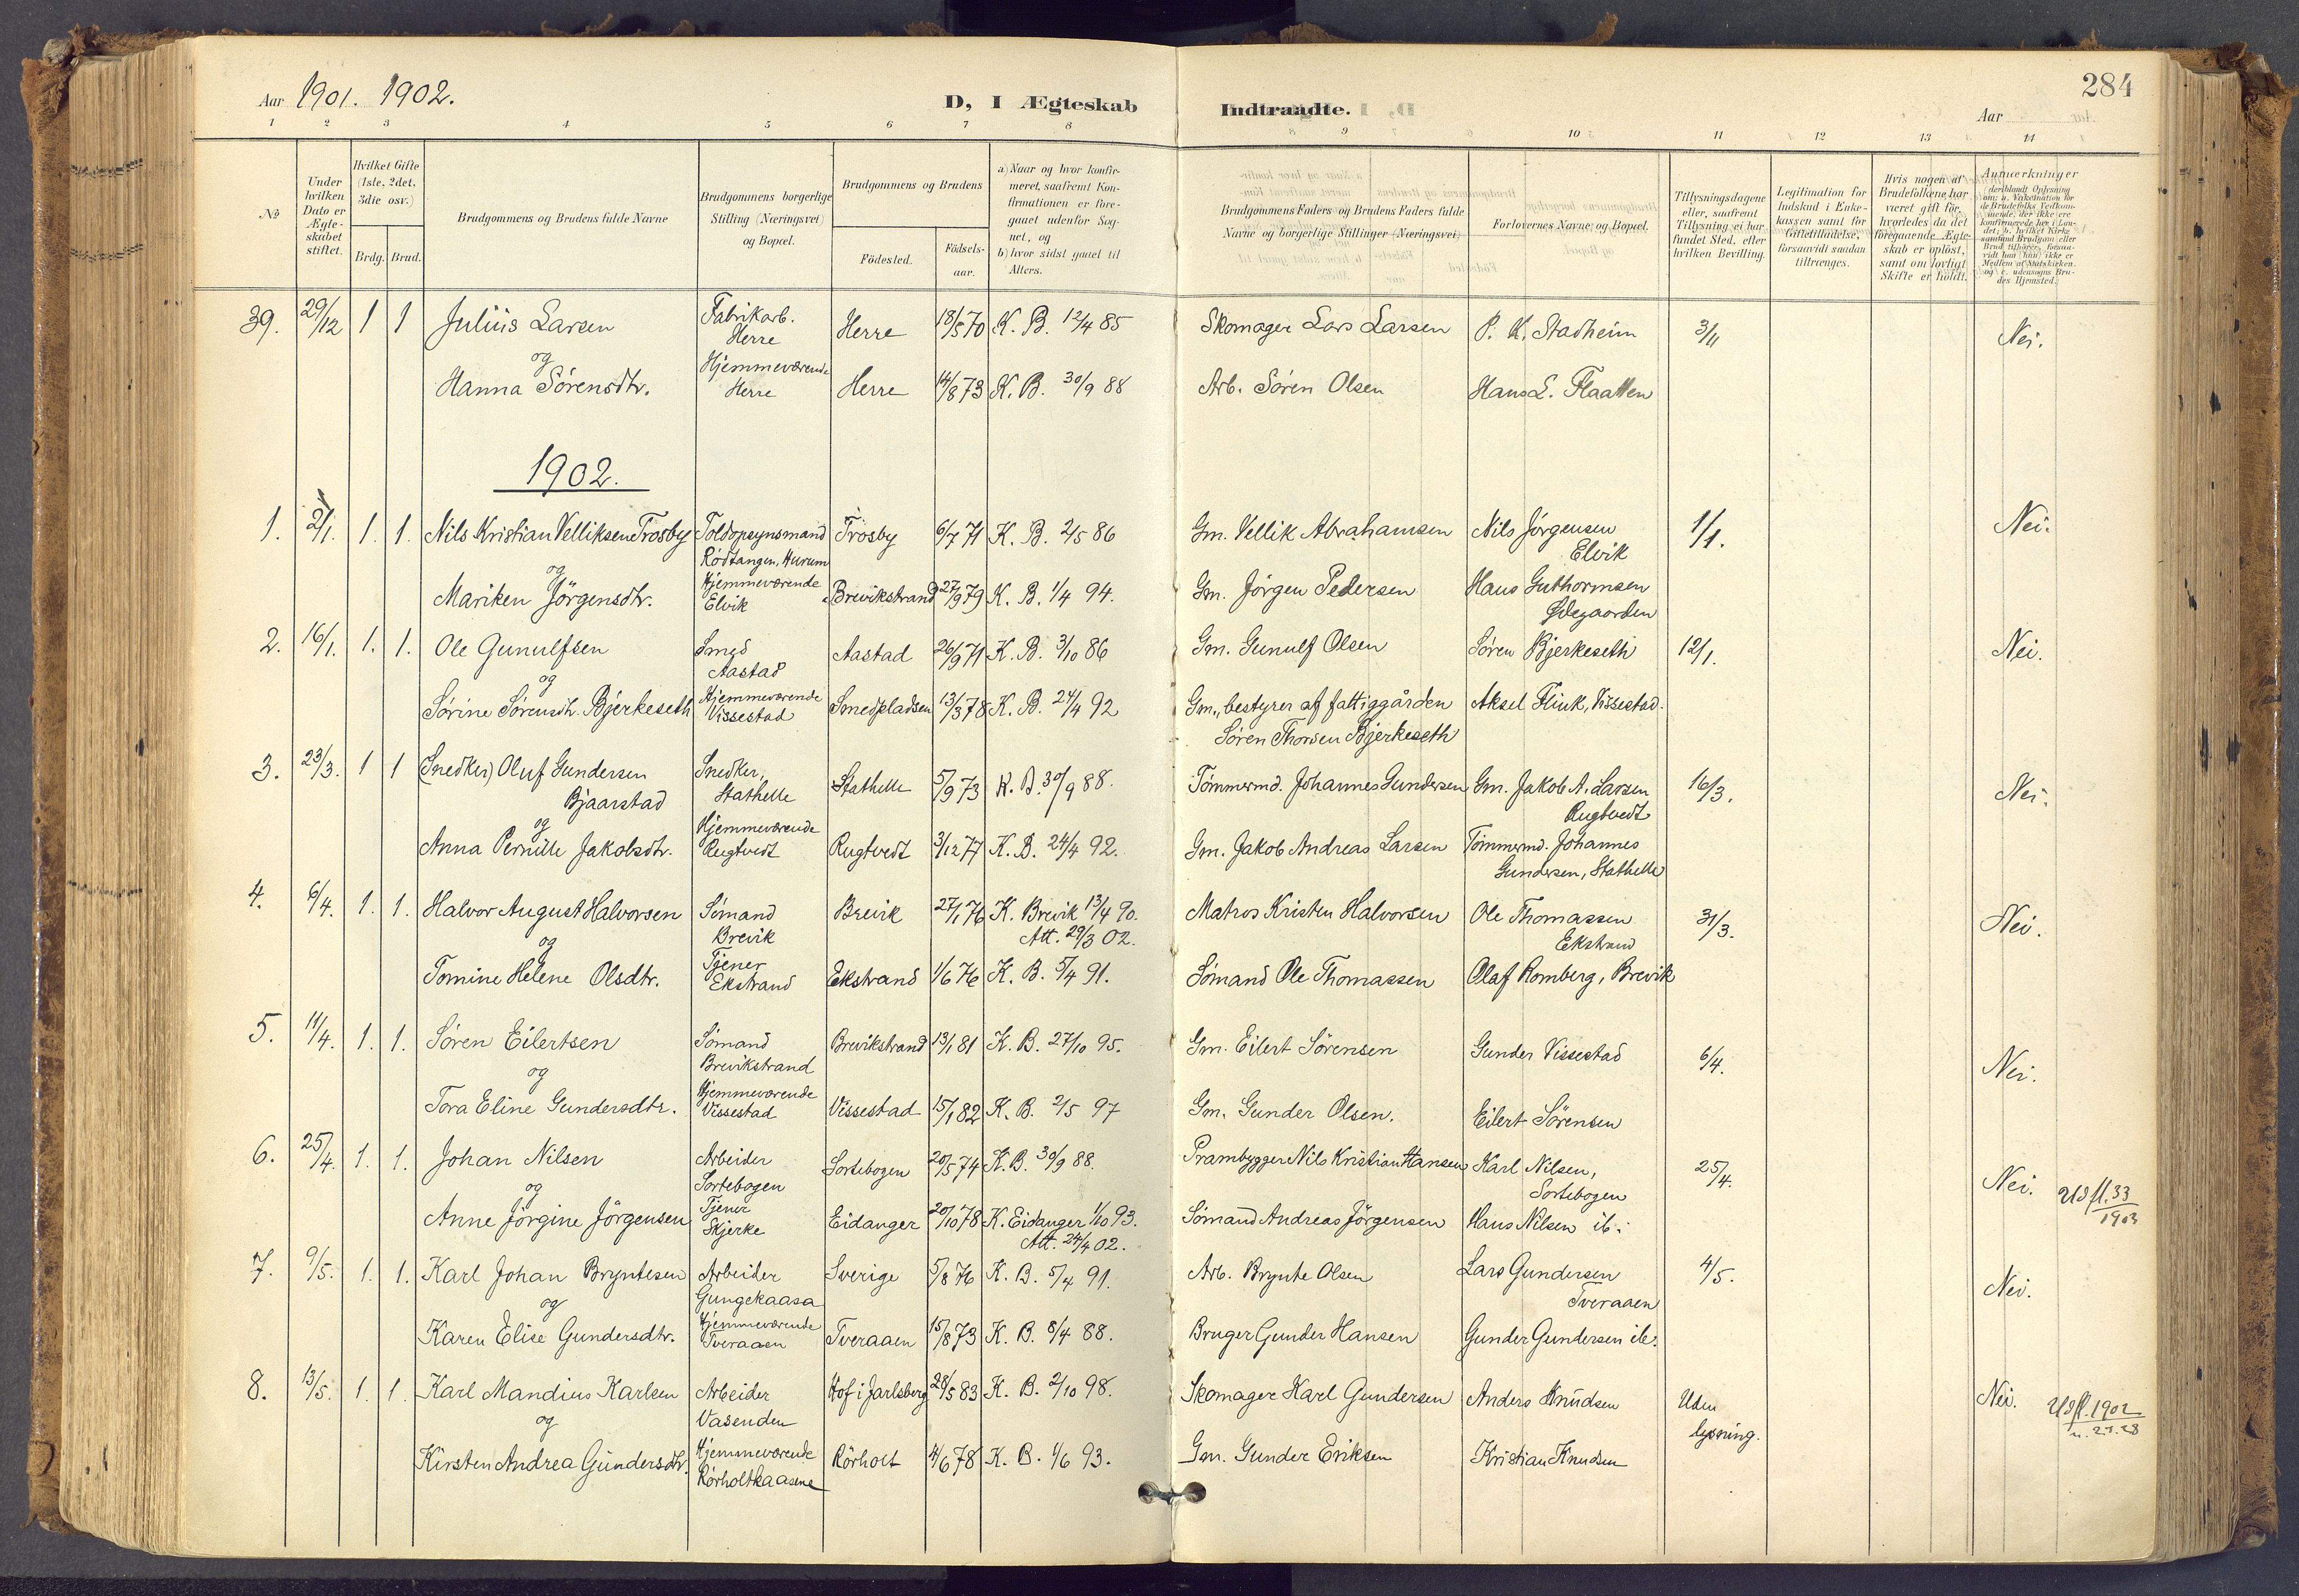 Aar 1901. 1902.
D, I Ægteskab
Indtraadte.
284
Aar
1 2 3 4 5 6 7 8
8 9 10 11 12 13 14
No
Under hvilken Dato er Ægteskabet stiftet.
Hvilket Gifte (1ste, 2det, 3die osv.)
Brdg. Brud.
Brudgommens og Brudens fulde Navne
Brudgommens borgerlige Stilling (Næringsvei) og Bopæl.
Brudgommens og Brudens
Fødested.
Fødselsaar.
a) Naar og hvor konfirmeret, saafremt Konfirmationen er foregaaet udenfor Sognet, og
b) hvor sidst gaaet til Alters.
Brudgommens Faders og Brudens Faders fulde Navne og borgerlige Stillinger (Næringsvei)
Forlovernes Navne og Bopæl.
Tillysningsdagene eller, saafremt Tillysning ei har fundet Sted, efter hvilken Bevilling.
Legitimation for Indskud i Enkekassen samt for Giftetilladelse, forsaavidt saadan tiltrænges.
Hvis nogen af Brudefolkene har været gift før, hvorledes da det foregaaende Ægteskab er opløst, samt om lovligt Skifte er holdt.
Anmærkninger
39. 29/12 1 1 Julius Larsen Fabrikarb. Herre Herre 18/5 70 K. B. 12/4 85 Skomager Lars Larsen P. K. Stadheim 3/11 Nei.
og
Hanna Sörensdtr. Hjemmeværende Herre Herre 14/8 73 K. B. 30/9 88 Arb. Sören Olsen Hans L. Flaatten
1902.
1. 2/1. 1. 1. Nils Kristian Velliksen Trosby Toldopsynsmand Rödtangen, Hurum Trosby 6/7 71 K. B. 2/5 86 Gm. Vellik Abrahamsen Nils Jörgensen Elvik 1/1. Nei.
og
Mariken Jörgensdtr. Hjemmeværende Elvik Brevikstrand 27/9 79 K. B. 1/4 94. Gm. Jörgen Pedersen Hans Guthormsen Ødegaarden
2. 16/1. 1. 1. Ole Gunulfsen Smed Aastad Aastad 26/9 71 K. B. 3/10 86 Gm. Gunulf Olsen Sören Bjerkeseth 12/1. Nei.
og
Sörine Sörensdtr. Bjerkeseth Hjemmeværende Vissestad Smedpladsen 13/3 78 K. B. 24/4 92 Gm., bestyrer af fattiggården Sören Thorsen Bjerkeseth Aksel Flink, Vissestad.
3. 23/3. 1 1 (Snedker) Oluf Gundersen Bjaarstad Snedker, Stathelle Stathelle 5/9 73 K. B. 30/9 88. Tömmermd. Johannes Gundersen Gm. Jakob A. Larsen Rugtvedt 16/3. Nei.
og
Anna Pernille Jakobsdtr. Hjemmeværende Rugtvedt Rugtvedt 3/12 77 K. B. 24/4 92. Gm. Jakob Andreas Larsen Tömmermd. Johannes Gundersen, Stathelle
4. 6/4. 1. 1. Halvor August Halvorsen Sömand Brevik Brevik 27/1 76 K. Brevik 13/4 90. Att. 29/3 02. Matros Kristen Halvorsen Ole Thomassen Ekstrand 31/3. Nei.
og
Tomine Helene Olsdtr. Tjener Ekstrand Ekstrand 1/6 76 K. B. 5/4 91. Sömand Ole Thomassen Olaf Romberg, Brevik
5. 11/4. 1. 1. Sören Eilertsen Sömand Brevikstrand Brevikstrand 13/1 81 K. B. 27/10 95. Gm. Eilert Sörensen Gunder Vissestad 6/4. Nei.
og
Tora Eline Gundersdtr. Hjemmeværende Vissestad Vissestad 15/1 82 K. B. 2/5 97 Gm. Gunder Olsen. Eilert Sörensen
6. 25/4. 1. 1. Johan Nilsen Arbeider Sortebogen Sortebogen 20/5 74 K. B. 30/9 88. Prambygger Nils Kristian Hansen Karl Nilsen, Sortebogen 25/4. Nei. Udfl. 33 1903
og
Anne Jörgine Jörgensen Tjener Skjerke Eidanger 20/10 78 K. Eidanger 1/10 93. Att. 24/4 02. Sömand Andreas Jörgensen Hans Nilsen ib.
7. 9/5. 1. 1. Karl Johan Bryntesen Arbeider Gungekaasa Sverige 5/8 76 K. B. 5/4 91. Arb. Brynte Olsen Lars Gundersen Tveraaen 4/5. Nei.
og
Karen Elise Gundersdtr. Hjemmeværende Tveraaen Tveraaen 15/8 73 K. B. 8/4 88. Bruger Gunder Hansen Gunder Gundersen ib.
8. 13/5. 1. 1. Karl Mandius Karlsen Arbeider Vasenden Hof i Jarlsberg 28/5 83 K. B. 2/10 98. Skomager Karl Gundersen Anders Knudsen Uden lysning. Nei. Udfl. 1902 n. 27.28
og
Kirsten Andrea Gundersdtr. Hjemmeværende Rörholtkaasene Rörholt 4/6 78 K. B. 1/6 93. Gm. Gunder Eriksen Kristian Knudsen